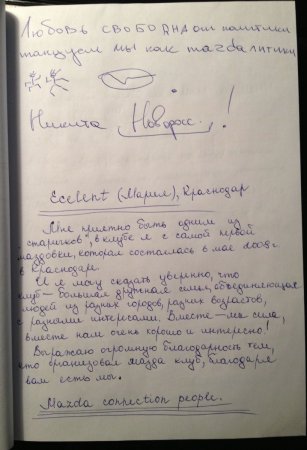 Любовь свободна от политики
танцуем мы как маzdaлитики
Никита Новорос. !
Ecelent (Мария), Краснодар
Мне приятно быть одним из
"старичков", в клубе я с самой первой
маздовки, которая состоялась в мае 2008г
в Краснодаре.
И я могу сказать уверенно, что
клуб – большая дружная семья, объединяющая
людей из разных городов, разных возрастов,
с разными интересами. Вместе – мы сила,
вместе нам очень хорошо и интересно!
Выражаю огромную благодарность тем,
кто организовал мазда клуб, благодаря
вам есть мы.
Mazda connection people.